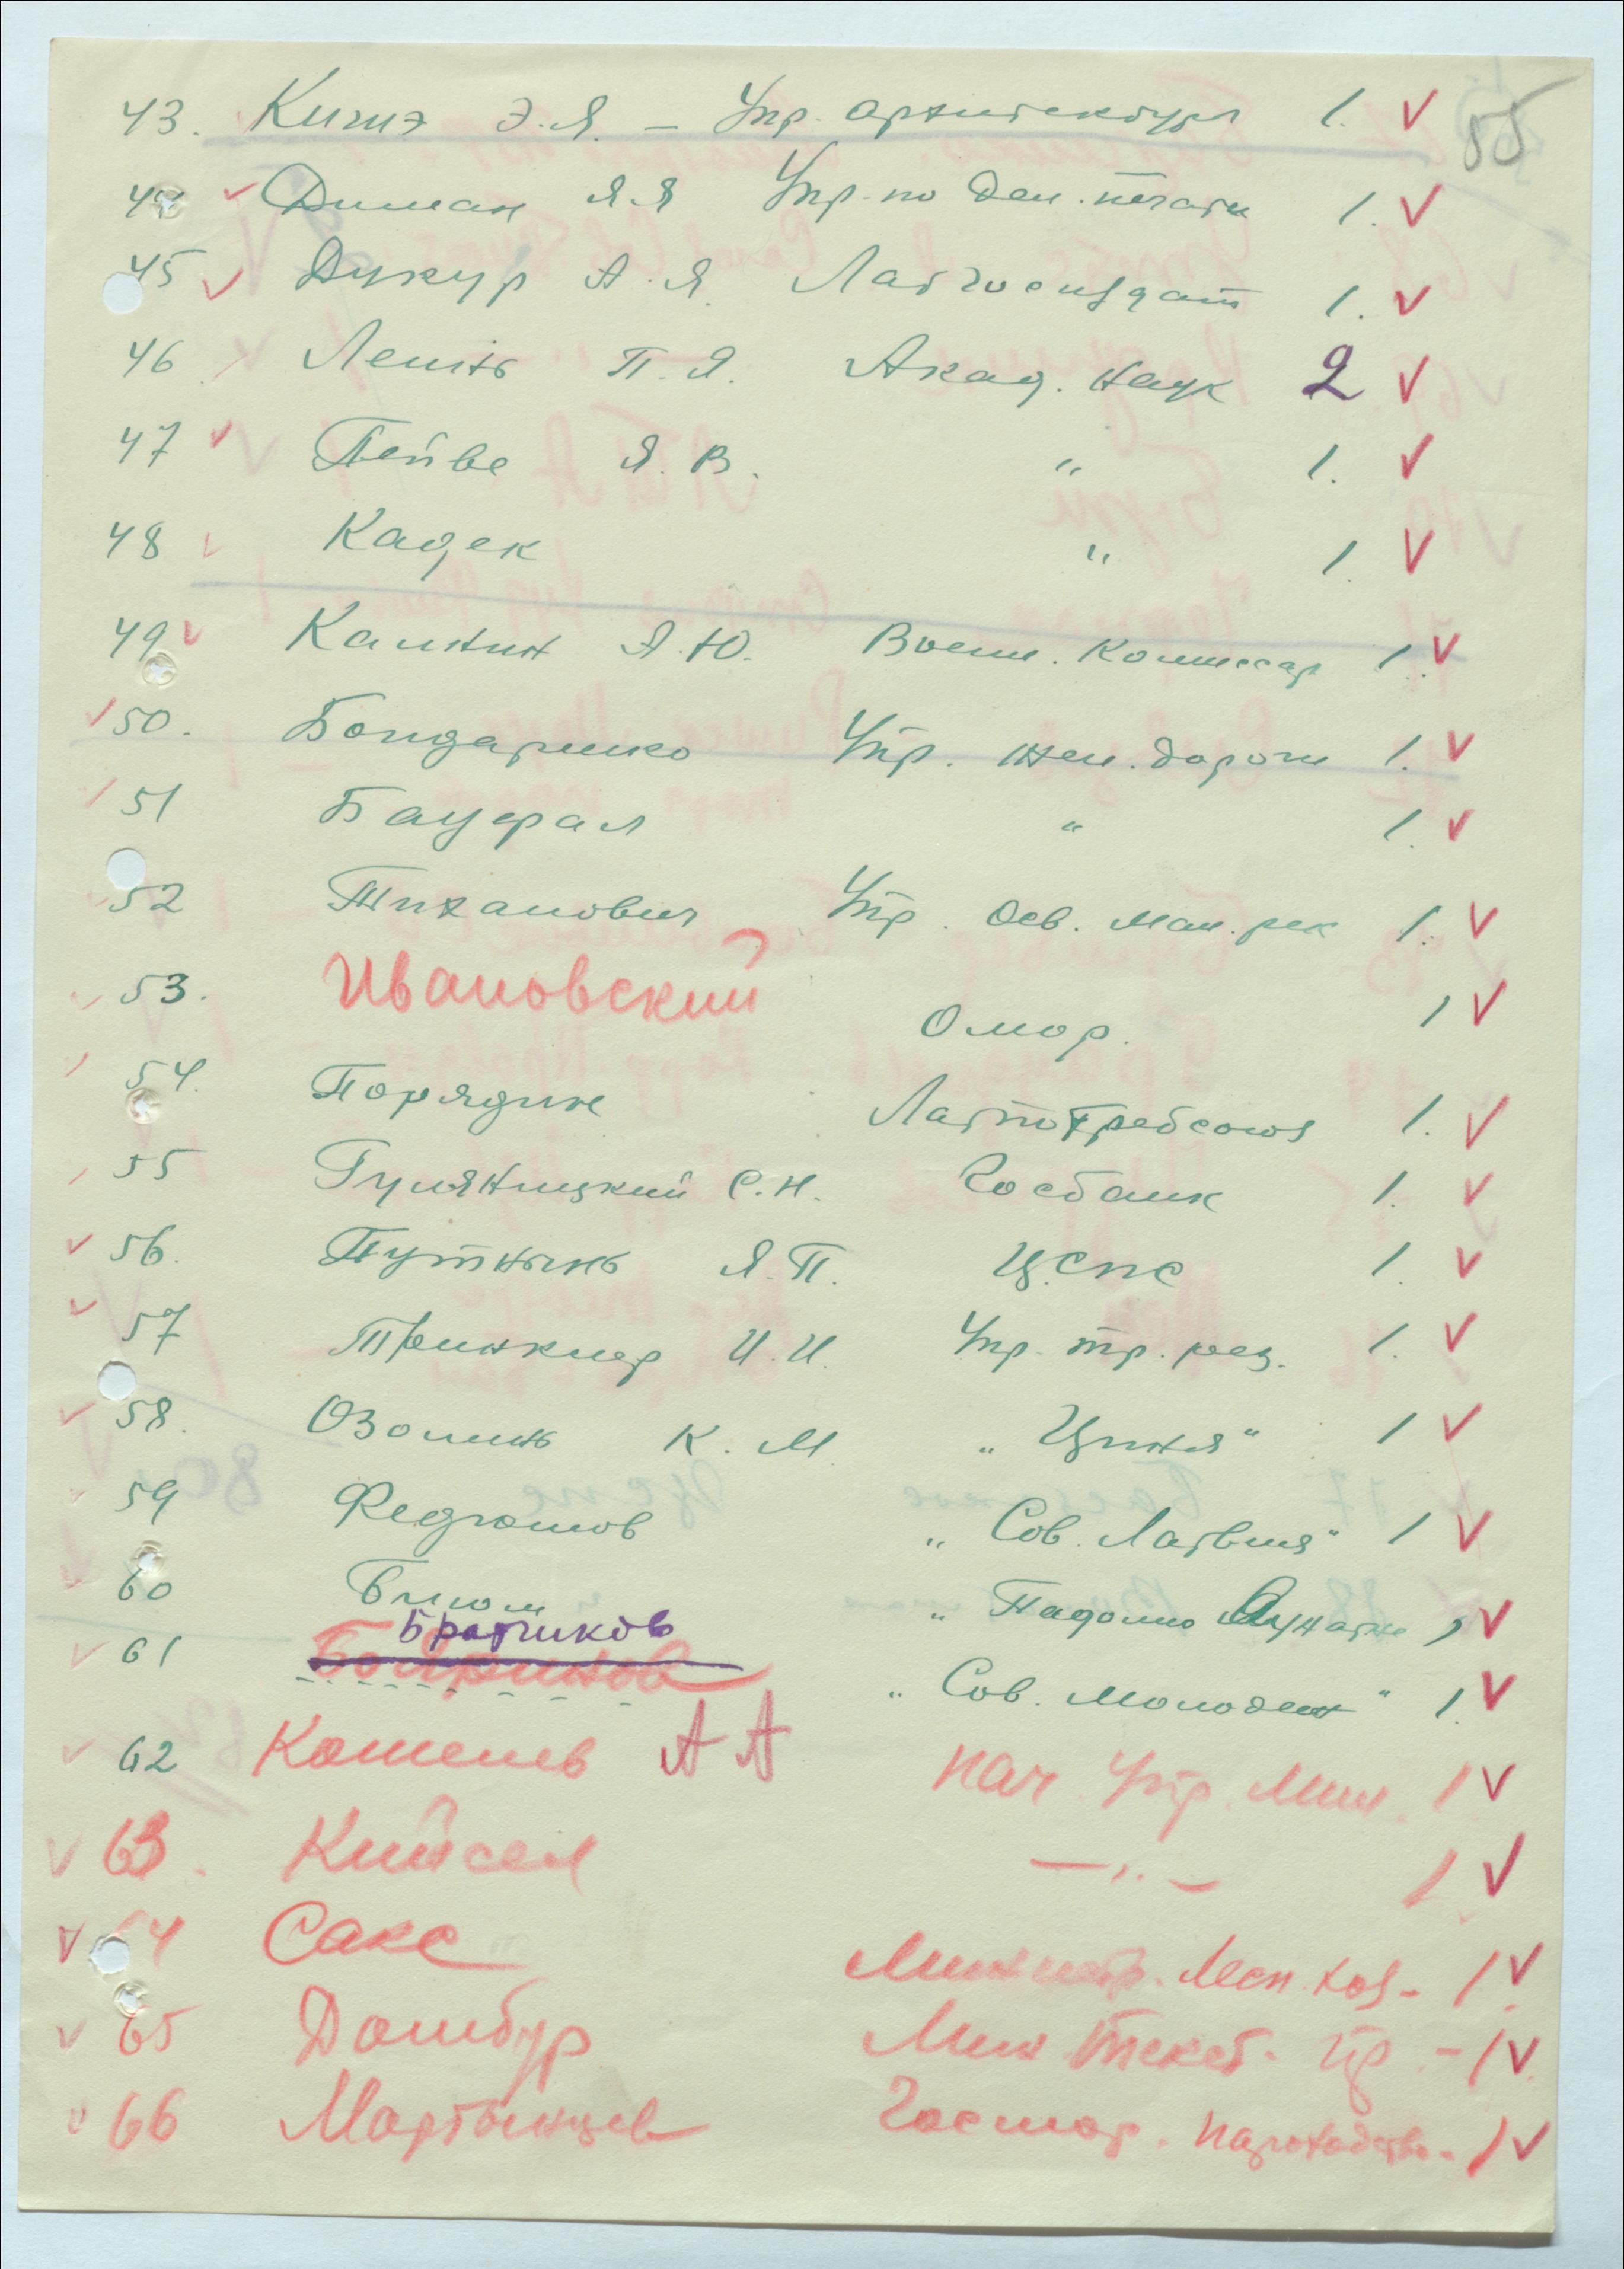 55
43. Кишэ Э.Я. – Упр. архитектуры 1. ✓
44 ✓ Диман Я.Я Упр. по дел. печати 1. ✓
45 ✓ Дукур А.Я. Латгосиздат 1. ✓
46. Лешнь П.Я. Акад. Наук 2 ✓
47 ✓ Пейве Я.В. " 1. ✓
48 ✓ Кадек " 1. ✓
49 ✓ Калнин Я.Ю. Военн. Комиссар 1. ✓
✓ 50. Бондаренко Упр. жел. дороги 1. ✓
51 Бауфал " 1. ✓
52 Тиханович Упр. Осв. мал. рек 1. ✓
✓ 53. Ивановский Омор. 1 ✓
54. Порядин Латпотребсоюз 1. ✓
55 Гуляницкий С.Н. Госбанк 1. ✓
✓ 56. Путнынь Я.П. ЦСПС 1. ✓
✓ 57 Тринклер И.И. Упр. тр. рез. 1. ✓
✓ 58. Озолинь К.М. „Циня" 1 ✓
59 Федюшов „Сов. Латвия" 1 ✓
60 Блюм „Падомью Яунатне 1 ✓
Братчиков
✓ 61 „Сов. Молодеж" 1. ✓
✓ 62 Кошелев АА Нач. Упр. Мин. 1 ✓
✓ 63. Кийсел —"— 1 ✓
✓ 64 Сакс Министр. Лесн. хоз - 1 ✓
✓ 65 Домбур Мин текст. пр. - 1 ✓
✓ 66 Мартынцев Госмор. пароходство - 1 ✓